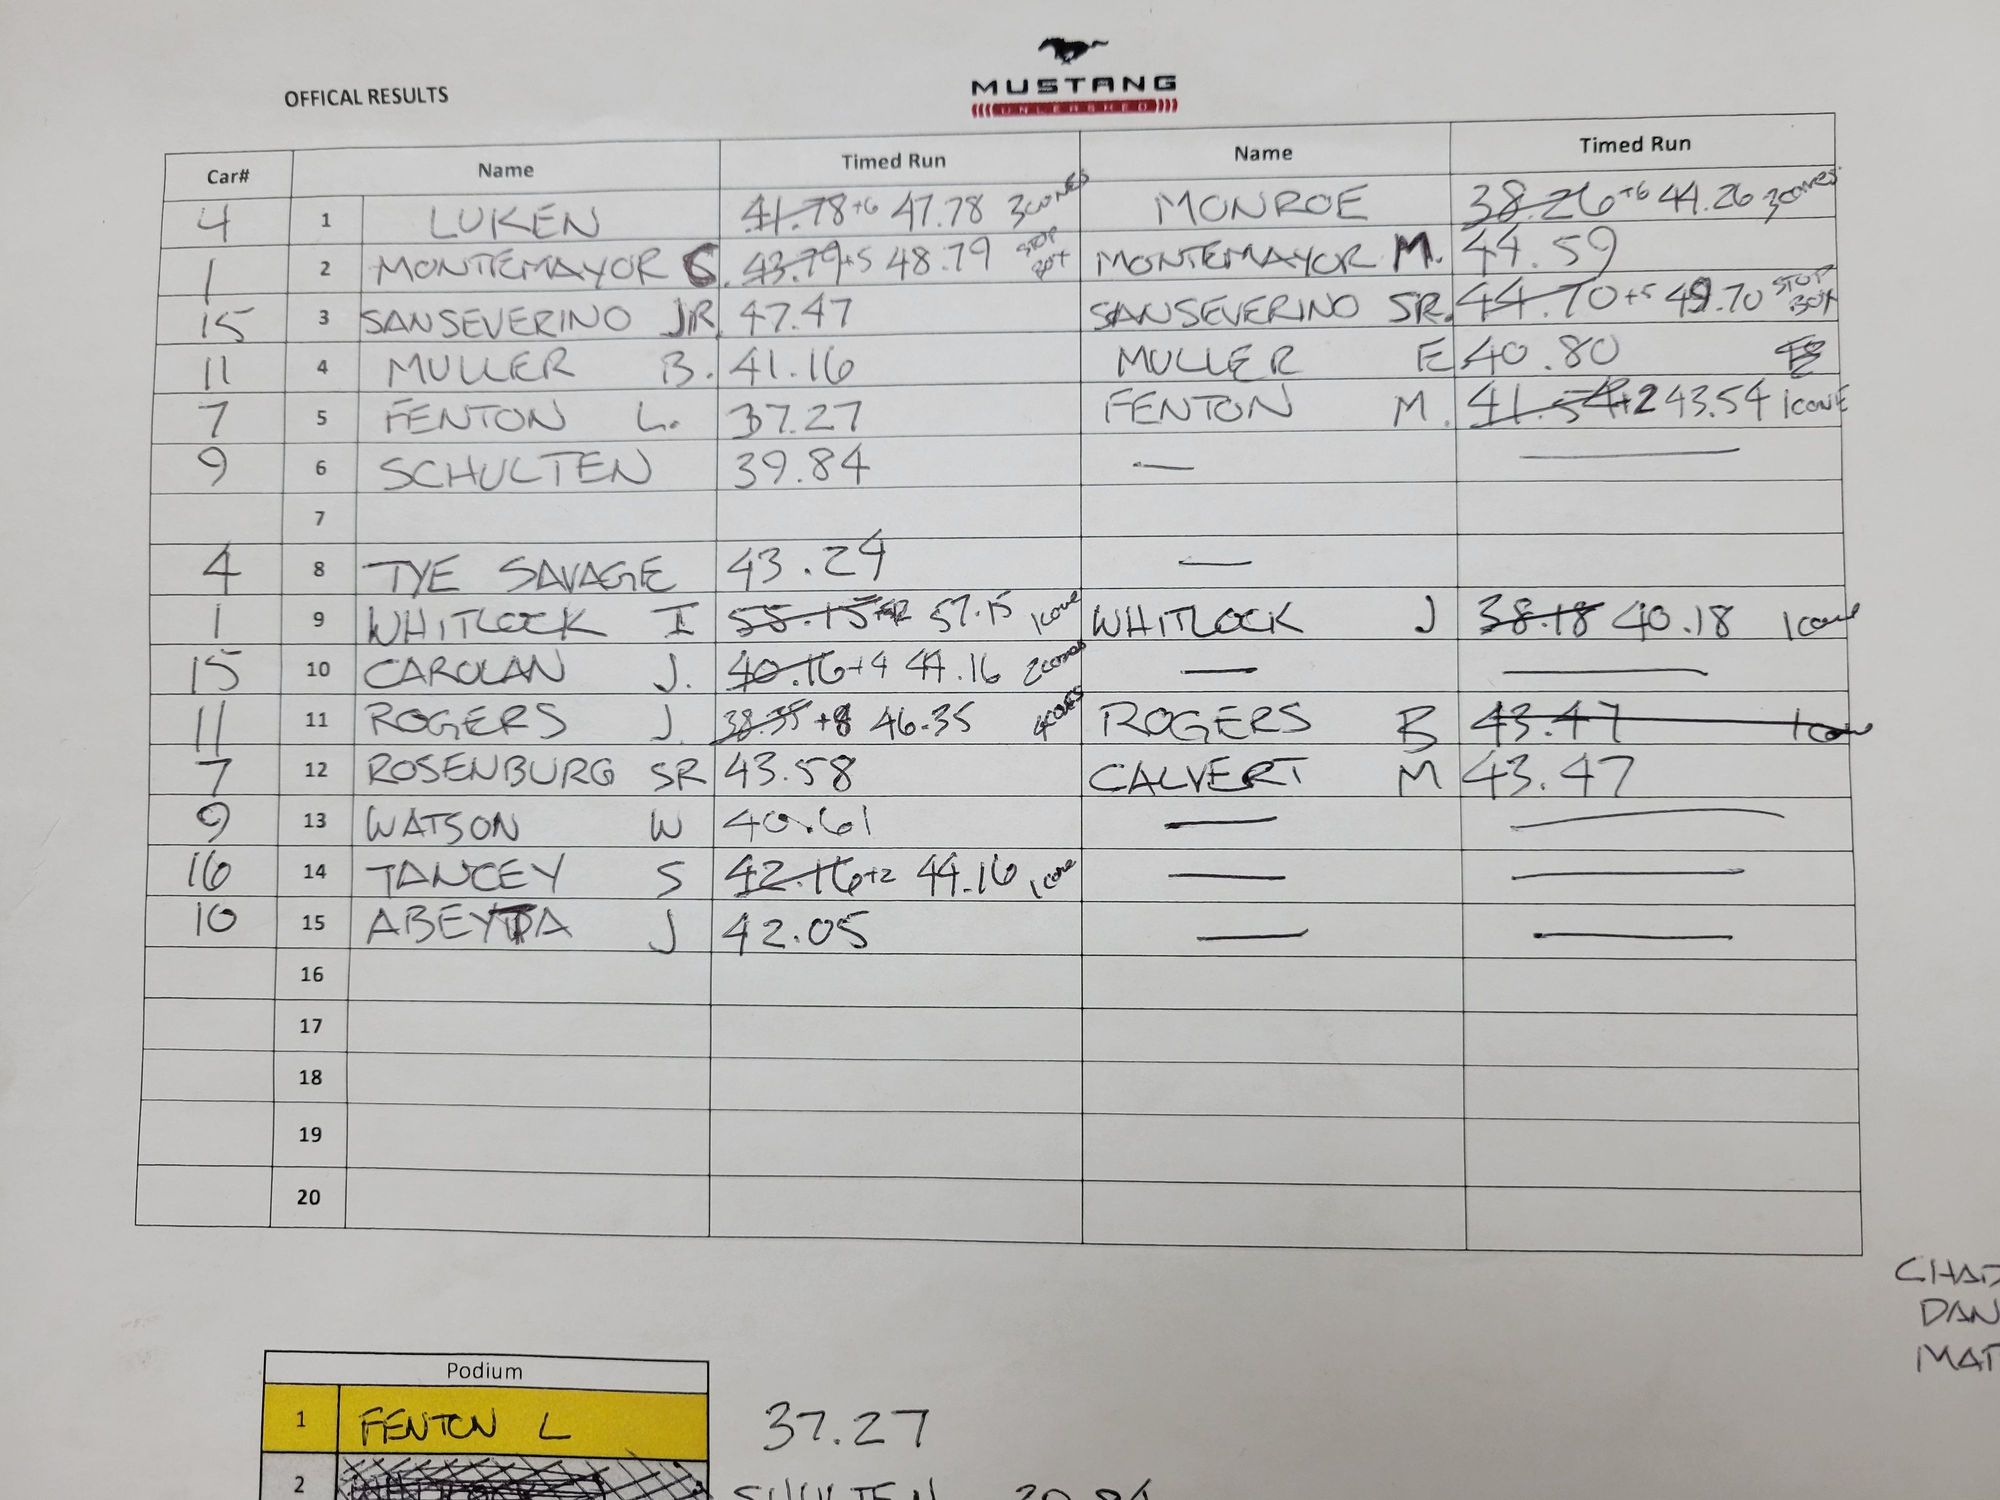 OFFICAL RESULTS
MUSTANG
UNLEASHED
Car# Name Timed Run Name Timed Run
4 1 LUKEN 41.78+6 47.78 3 cones MONROE 38.26+6 44.26 3 cones
1 2 MONTEMAYOR G. 43.79+5 48.79 STOP BOX MONTEMAYOR M. 44.59
15 3 SANSEVERINO JR. 47.47 SANSEVERINO SR. 44.70+5 49.70 STOP BOX
11 4 MULLER B. 41.16 MULLER E 40.80
7 5 FENTON L. 37.27 FENTON M. 41.54+2 43.54 1 CONE
9 6 SCHULTEN 39.84 —
7
4 8 TYE SAVAGE 43.24 —
1 9 WHITLOCK I 55.15+2 57.15 1 cone WHITLOCK J 38.18 40.18 1 cone
15 10 CAROLAN J. 40.16+4 44.16 2 cones —
11 11 ROGERS J. 38.35+8 46.35 4 cones ROGERS B 43.47 1 cone
7 12 ROSENBURG SR 43.58 CALVERT M 43.47
9 13 WATSON W 40.61 —
16 14 TANCEY S 42.16+2 44.16 1 cone —
10 15 ABEYTA J 42.05 —
16
17
18
19
20
CHAD
DAN
MAT
Podium
1 FENTON L 37.27
2 SHULTEN 39.84